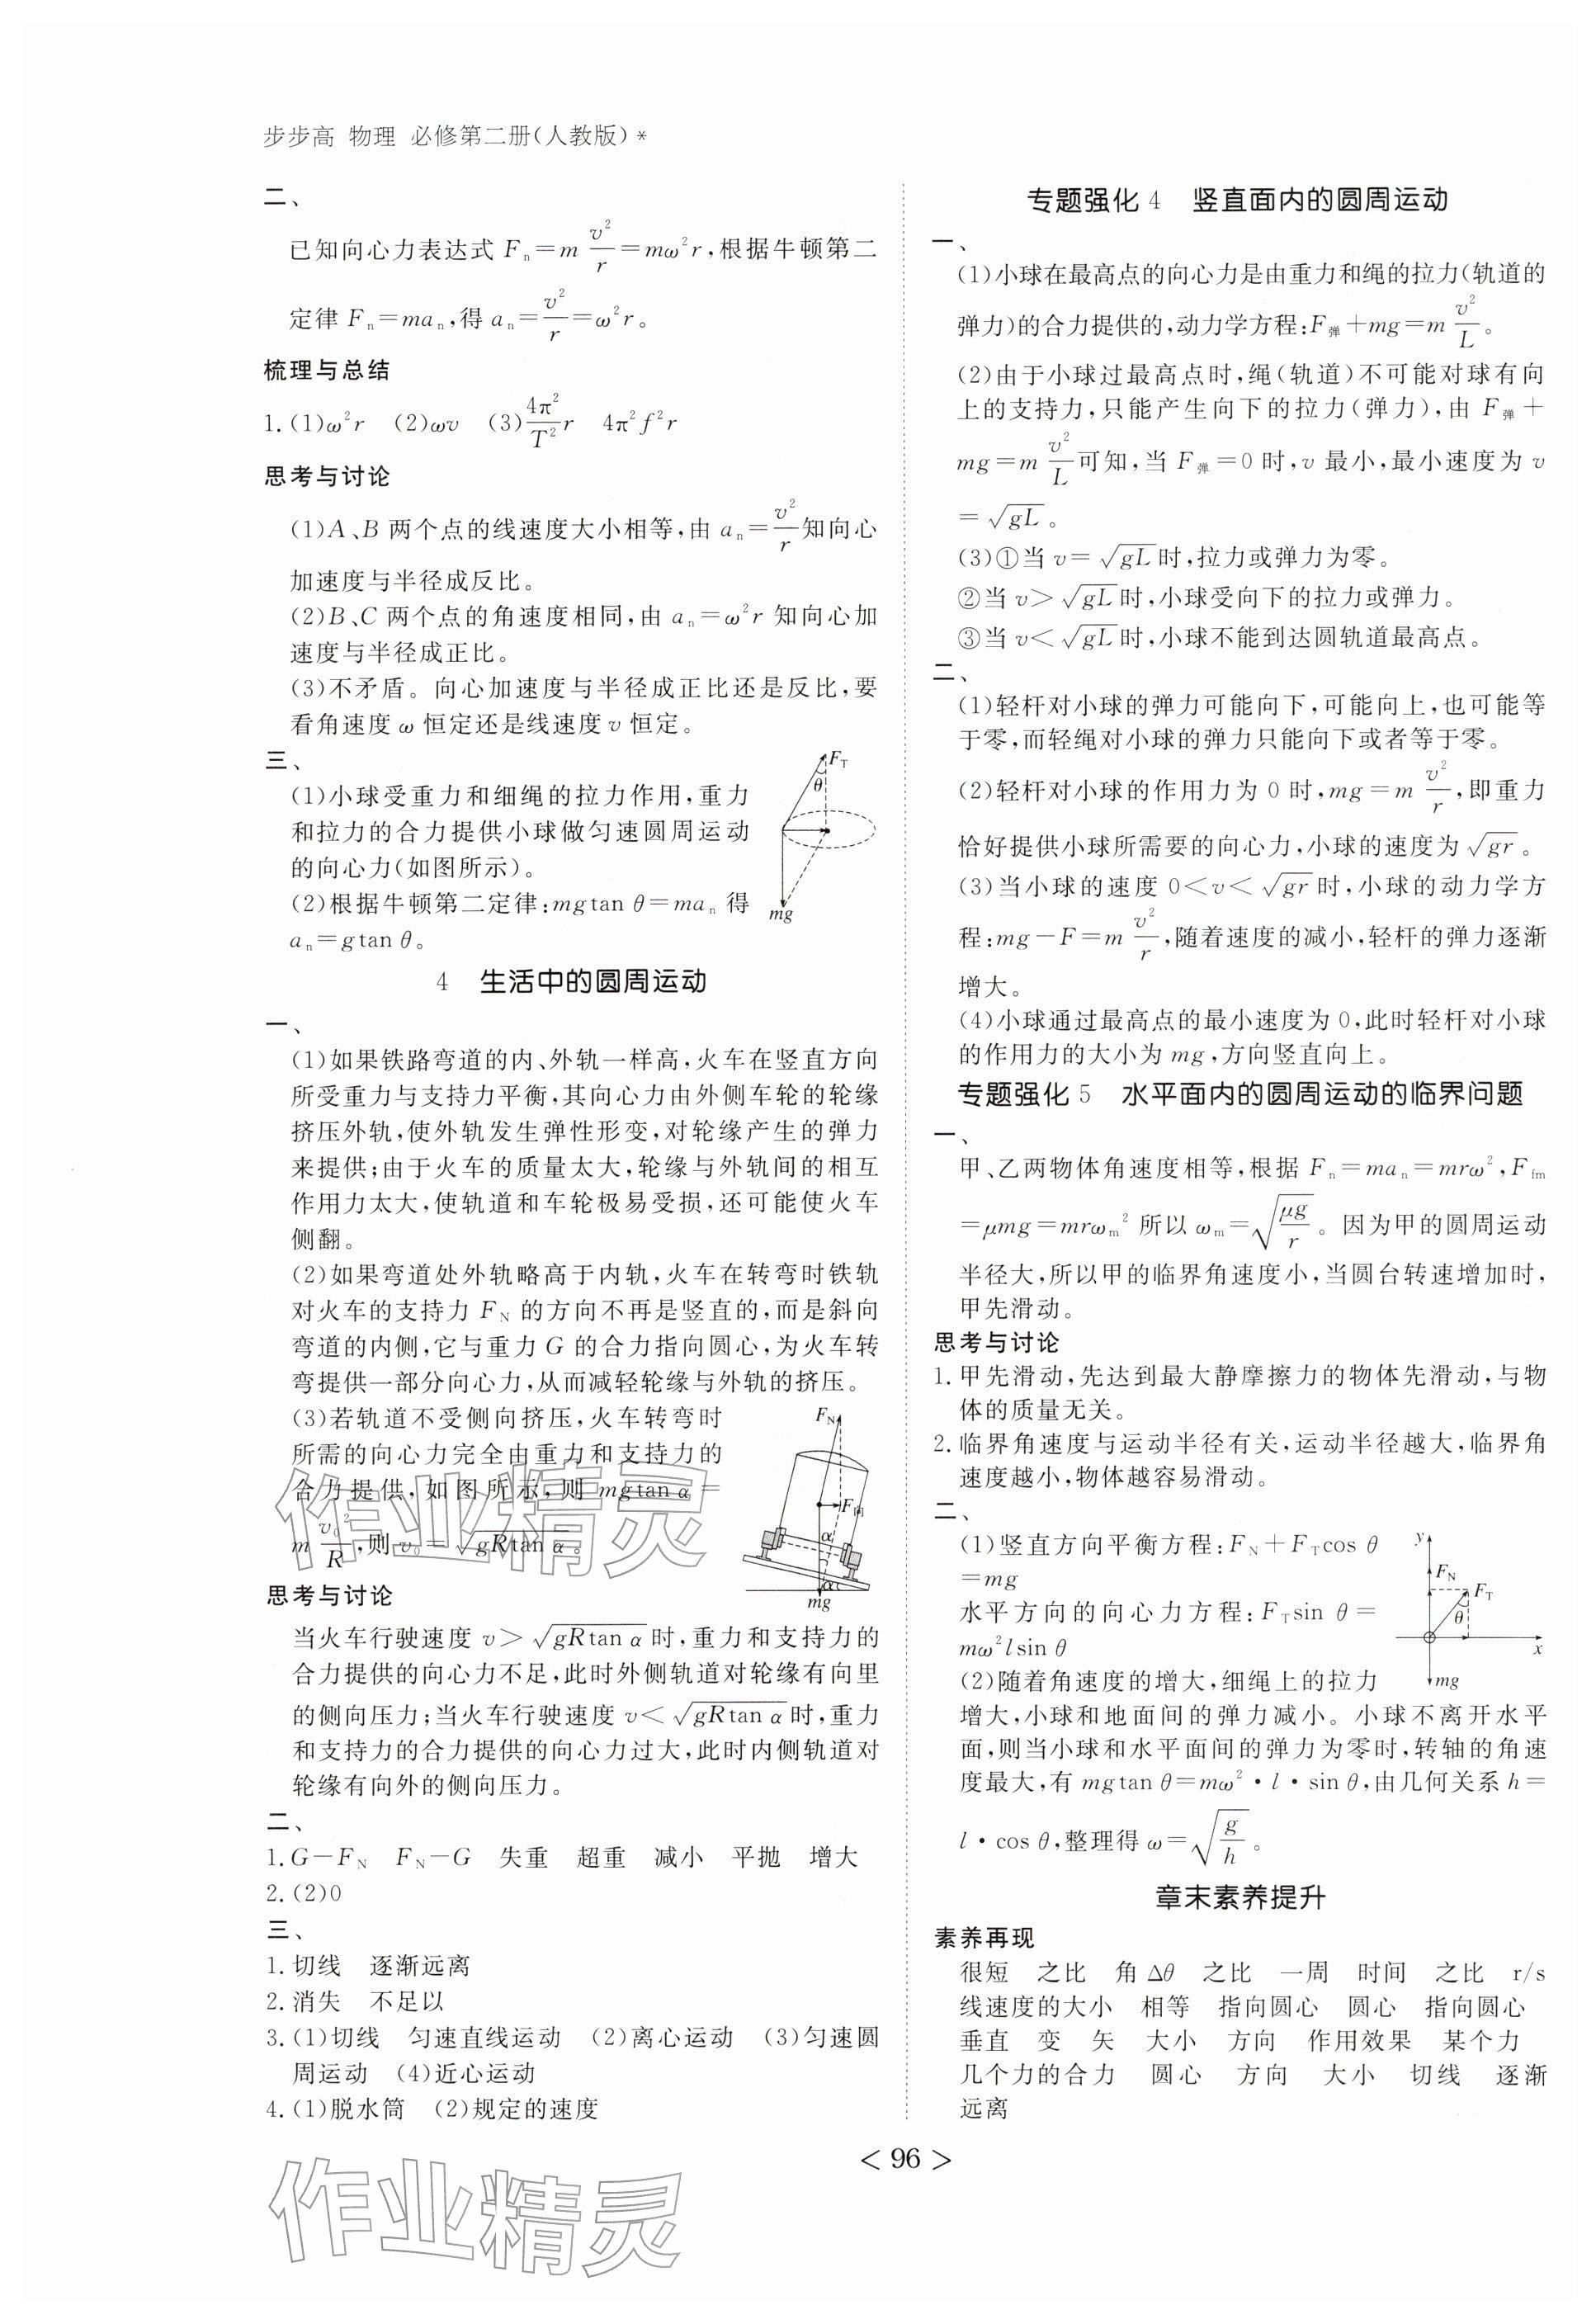 步步高 物理 必修第二册(人教版)*
二、
已知向心力表达式 Fₙ=m v²/r=mω²r,根据牛顿第二
定律 Fₙ=maₙ,得 aₙ=v²/r=ω²r。
梳理与总结
1.(1)ω²r (2)ωv (3)4π²/T² r 4π²f²r
思考与讨论
(1)A、B 两个点的线速度大小相等,由 aₙ=v²/r知向心
加速度与半径成反比。
(2)B、C 两个点的角速度相同,由 aₙ=ω²r 知向心加
速度与半径成正比。
(3)不矛盾。向心加速度与半径成正比还是反比,要
看角速度 ω 恒定还是线速度 v 恒定。
三、
(1)小球受重力和细绳的拉力作用,重力
和拉力的合力提供小球做匀速圆周运动
的向心力(如图所示)。
(2)根据牛顿第二定律:mgtan θ=maₙ 得
aₙ=gtan θ。
F_T
θ
mg
4 生活中的圆周运动
一、
(1)如果铁路弯道的内、外轨一样高,火车在竖直方向
所受重力与支持力平衡,其向心力由外侧车轮的轮缘
挤压外轨,使外轨发生弹性形变,对轮缘产生的弹力
来提供;由于火车的质量太大,轮缘与外轨间的相互
作用力太大,使轨道和车轮极易受损,还可能使火车
侧翻。
(2)如果弯道处外轨略高于内轨,火车在转弯时铁轨
对火车的支持力 F_N 的方向不再是竖直的,而是斜向
弯道的内侧,它与重力 G 的合力指向圆心,为火车转
弯提供一部分向心力,从而减轻轮缘与外轨的挤压。
(3)若轨道不受侧向挤压,火车转弯时
所需的向心力完全由重力和支持力的
合力提供,如图所示,则 mgtan α=
m v₀²/R,则 v₀=√(gRtan α)。
F_N
F向
α
α
mg
思考与讨论
当火车行驶速度 v>√(gRtan α)时,重力和支持力的
合力提供的向心力不足,此时外侧轨道对轮缘有向里
的侧向压力;当火车行驶速度 v<√(gRtan α)时,重力
和支持力的合力提供的向心力过大,此时内侧轨道对
轮缘有向外的侧向压力。
二、
1.G－F_N F_N－G 失重 超重 减小 平抛 增大
2.(2)0
三、
1.切线 逐渐远离
2.消失 不足以
3.(1)切线 匀速直线运动 (2)离心运动 (3)匀速圆
周运动 (4)近心运动
4.(1)脱水筒 (2)规定的速度
专题强化 4 竖直面内的圆周运动
一、
(1)小球在最高点的向心力是由重力和绳的拉力(轨道的
弹力)的合力提供的,动力学方程:F弹+mg=m v²/L。
(2)由于小球过最高点时,绳(轨道)不可能对球有向
上的支持力,只能产生向下的拉力(弹力),由 F弹+
mg=m v²/L可知,当 F弹=0 时,v 最小,最小速度为 v
=√(gL)。
(3)①当 v=√(gL)时,拉力或弹力为零。
②当 v>√(gL)时,小球受向下的拉力或弹力。
③当 v<√(gL)时,小球不能到达圆轨道最高点。
二、
(1)轻杆对小球的弹力可能向下,可能向上,也可能等
于零,而轻绳对小球的弹力只能向下或者等于零。
(2)轻杆对小球的作用力为 0 时,mg=m v²/r,即重力
恰好提供小球所需要的向心力,小球的速度为√(gr)。
(3)当小球的速度 0<v<√(gr)时,小球的动力学方
程:mg－F=m v²/r,随着速度的减小,轻杆的弹力逐渐
增大。
(4)小球通过最高点的最小速度为 0,此时轻杆对小球
的作用力的大小为 mg,方向竖直向上。
专题强化 5 水平面内的圆周运动的临界问题
一、
甲、乙两物体角速度相等,根据 Fₙ=maₙ=mrω²,F_fm
=μmg=mrω_m² 所以 ω_m=√(μg/r)。因为甲的圆周运动
半径大,所以甲的临界角速度小,当圆台转速增加时,
甲先滑动。
思考与讨论
1.甲先滑动,先达到最大静摩擦力的物体先滑动,与物
体的质量无关。
2.临界角速度与运动半径有关,运动半径越大,临界角
速度越小,物体越容易滑动。
二、
(1)竖直方向平衡方程:F_N+F_Tcos θ
=mg
水平方向的向心力方程:F_Tsin θ=
mω²lsin θ
(2)随着角速度的增大,细绳上的拉力
y
F_N
F_T
θ
x
mg
增大,小球和地面间的弹力减小。小球不离开水平
面,则当小球和水平面间的弹力为零时,转轴的角速
度最大,有 mgtan θ=mω²·l·sin θ,由几何关系 h=
l·cos θ,整理得 ω=√(g/h)。
章末素养提升
素养再现
很短 之比 角 Δθ 之比 一周 时间 之比 r/s
线速度的大小 相等 指向圆心 圆心 指向圆心
垂直 变 矢 大小 方向 作用效果 某个力
几个力的合力 圆心 方向 大小 切线 逐渐
远离
<96>
作业精灵
作业精灵